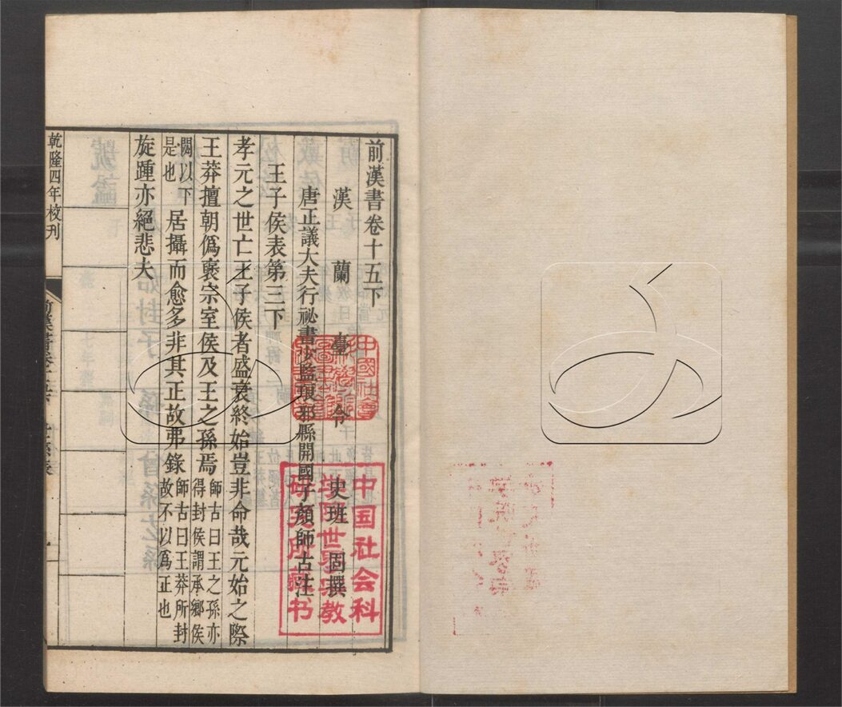 前漢書卷十五下
漢蘭臺令史班固撰
唐正議大夫行祕書少監琅邪縣開國子顏師古注
王子侯表第三下
孝元之世亡王子侯者盛衰終始豈非命哉元始之際
王莽擅朝偽褒宗室侯及王之孫焉
師古曰王之孫亦
得封侯謂承鄉侯
閎以下
是也
居攝而愈多非其正故弗錄
師古曰王莽所封
故不以爲正也
旋踵亦絕悲夫
乾隆四年校刊
中国社会科
学院世界宗教
研究所藏书